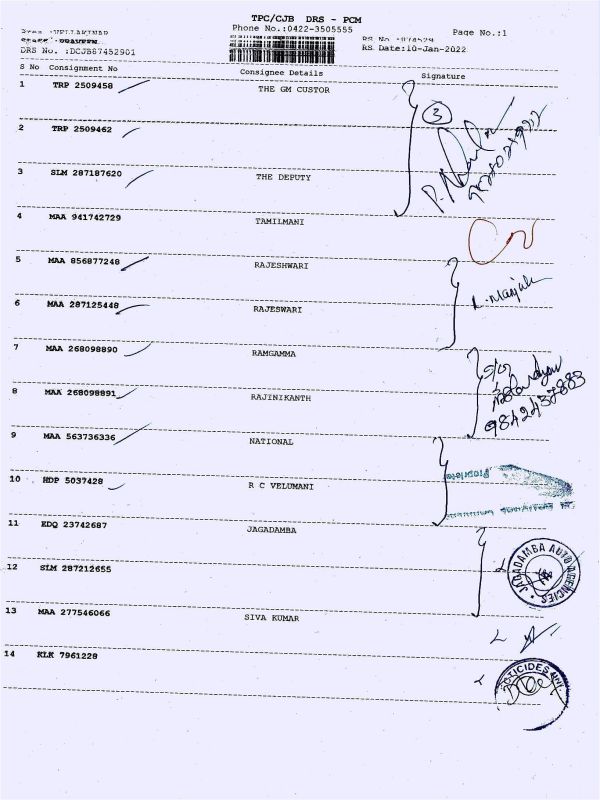 TPC/CJB DRS - PCM
Phone No.:0422-3505555 Page No.:1
DRS No. :DCJB87452901 RS Date:10-Jan-2022
S No Consignment No Consignee Details Signature
1 TRP 2509458 THE GM CUSTOR
3
2 TRP 2509462
3 SLM 287187620 THE DEPUTY
4 MAA 941742729 TAMILMANI
5 MAA 856877248 RAJESHWARI
6 MAA 287125448 RAJESWARI
7 MAA 268098890 RAMGAMMA
8 MAA 268098891 RAJINIKANTH
9842437883
9 MAA 563736336 NATIONAL
10 HDP 5037428 R C VELUMANI
11 EDQ 23742687 JAGADAMBA
JAGADAMBA AUTO AGENCIES
12 SLM 287212655
13 MAA 277546066 SIVA KUMAR
14 KLK 7961228